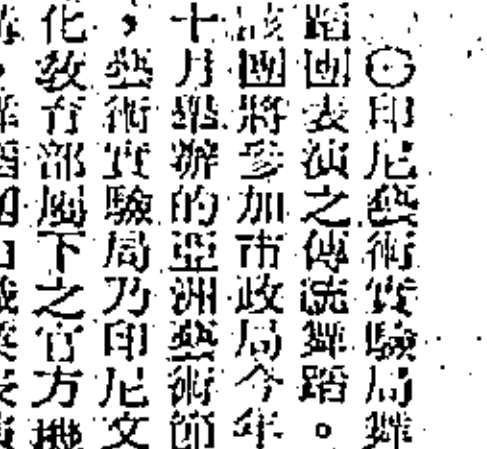 ⊙印尼藝術實驗局舞
蹈團表演之傳統舞蹈。
該團將參加市政局今年
十月舉辦的亞洲藝術節
，藝術實驗局乃印尼文
化教育部屬下之官方機